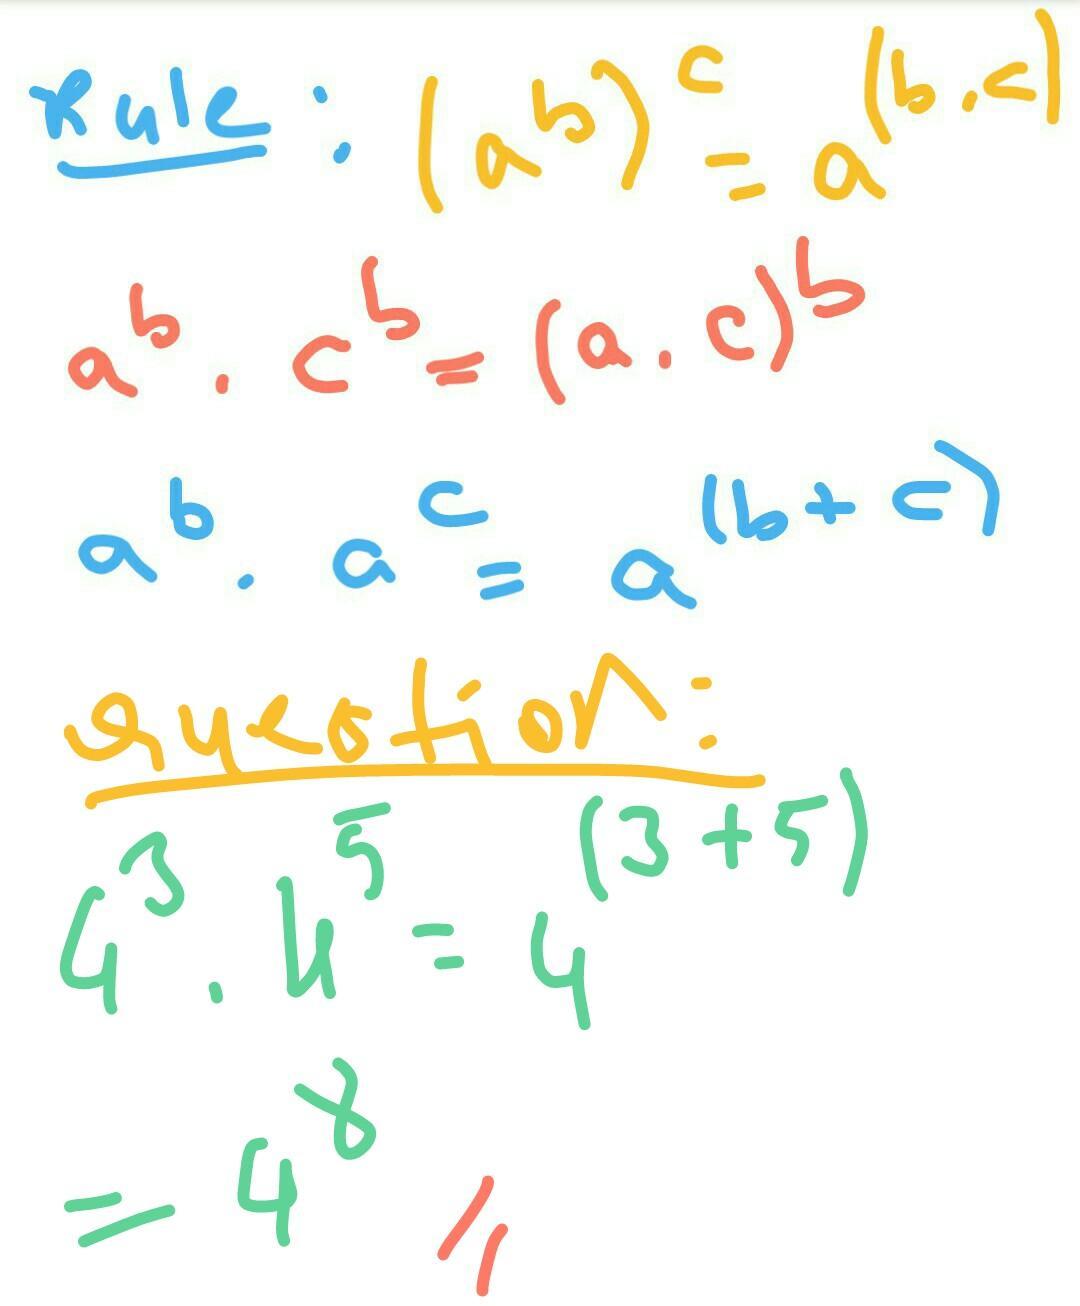 Rule : (a^b)^c = a^(b.c)
a^b . c^b = (a.c)^b
a^b . a^c = a^(b+c)
question:
4^3 . 4^5 = 4^(3+5)
= 4^8 //